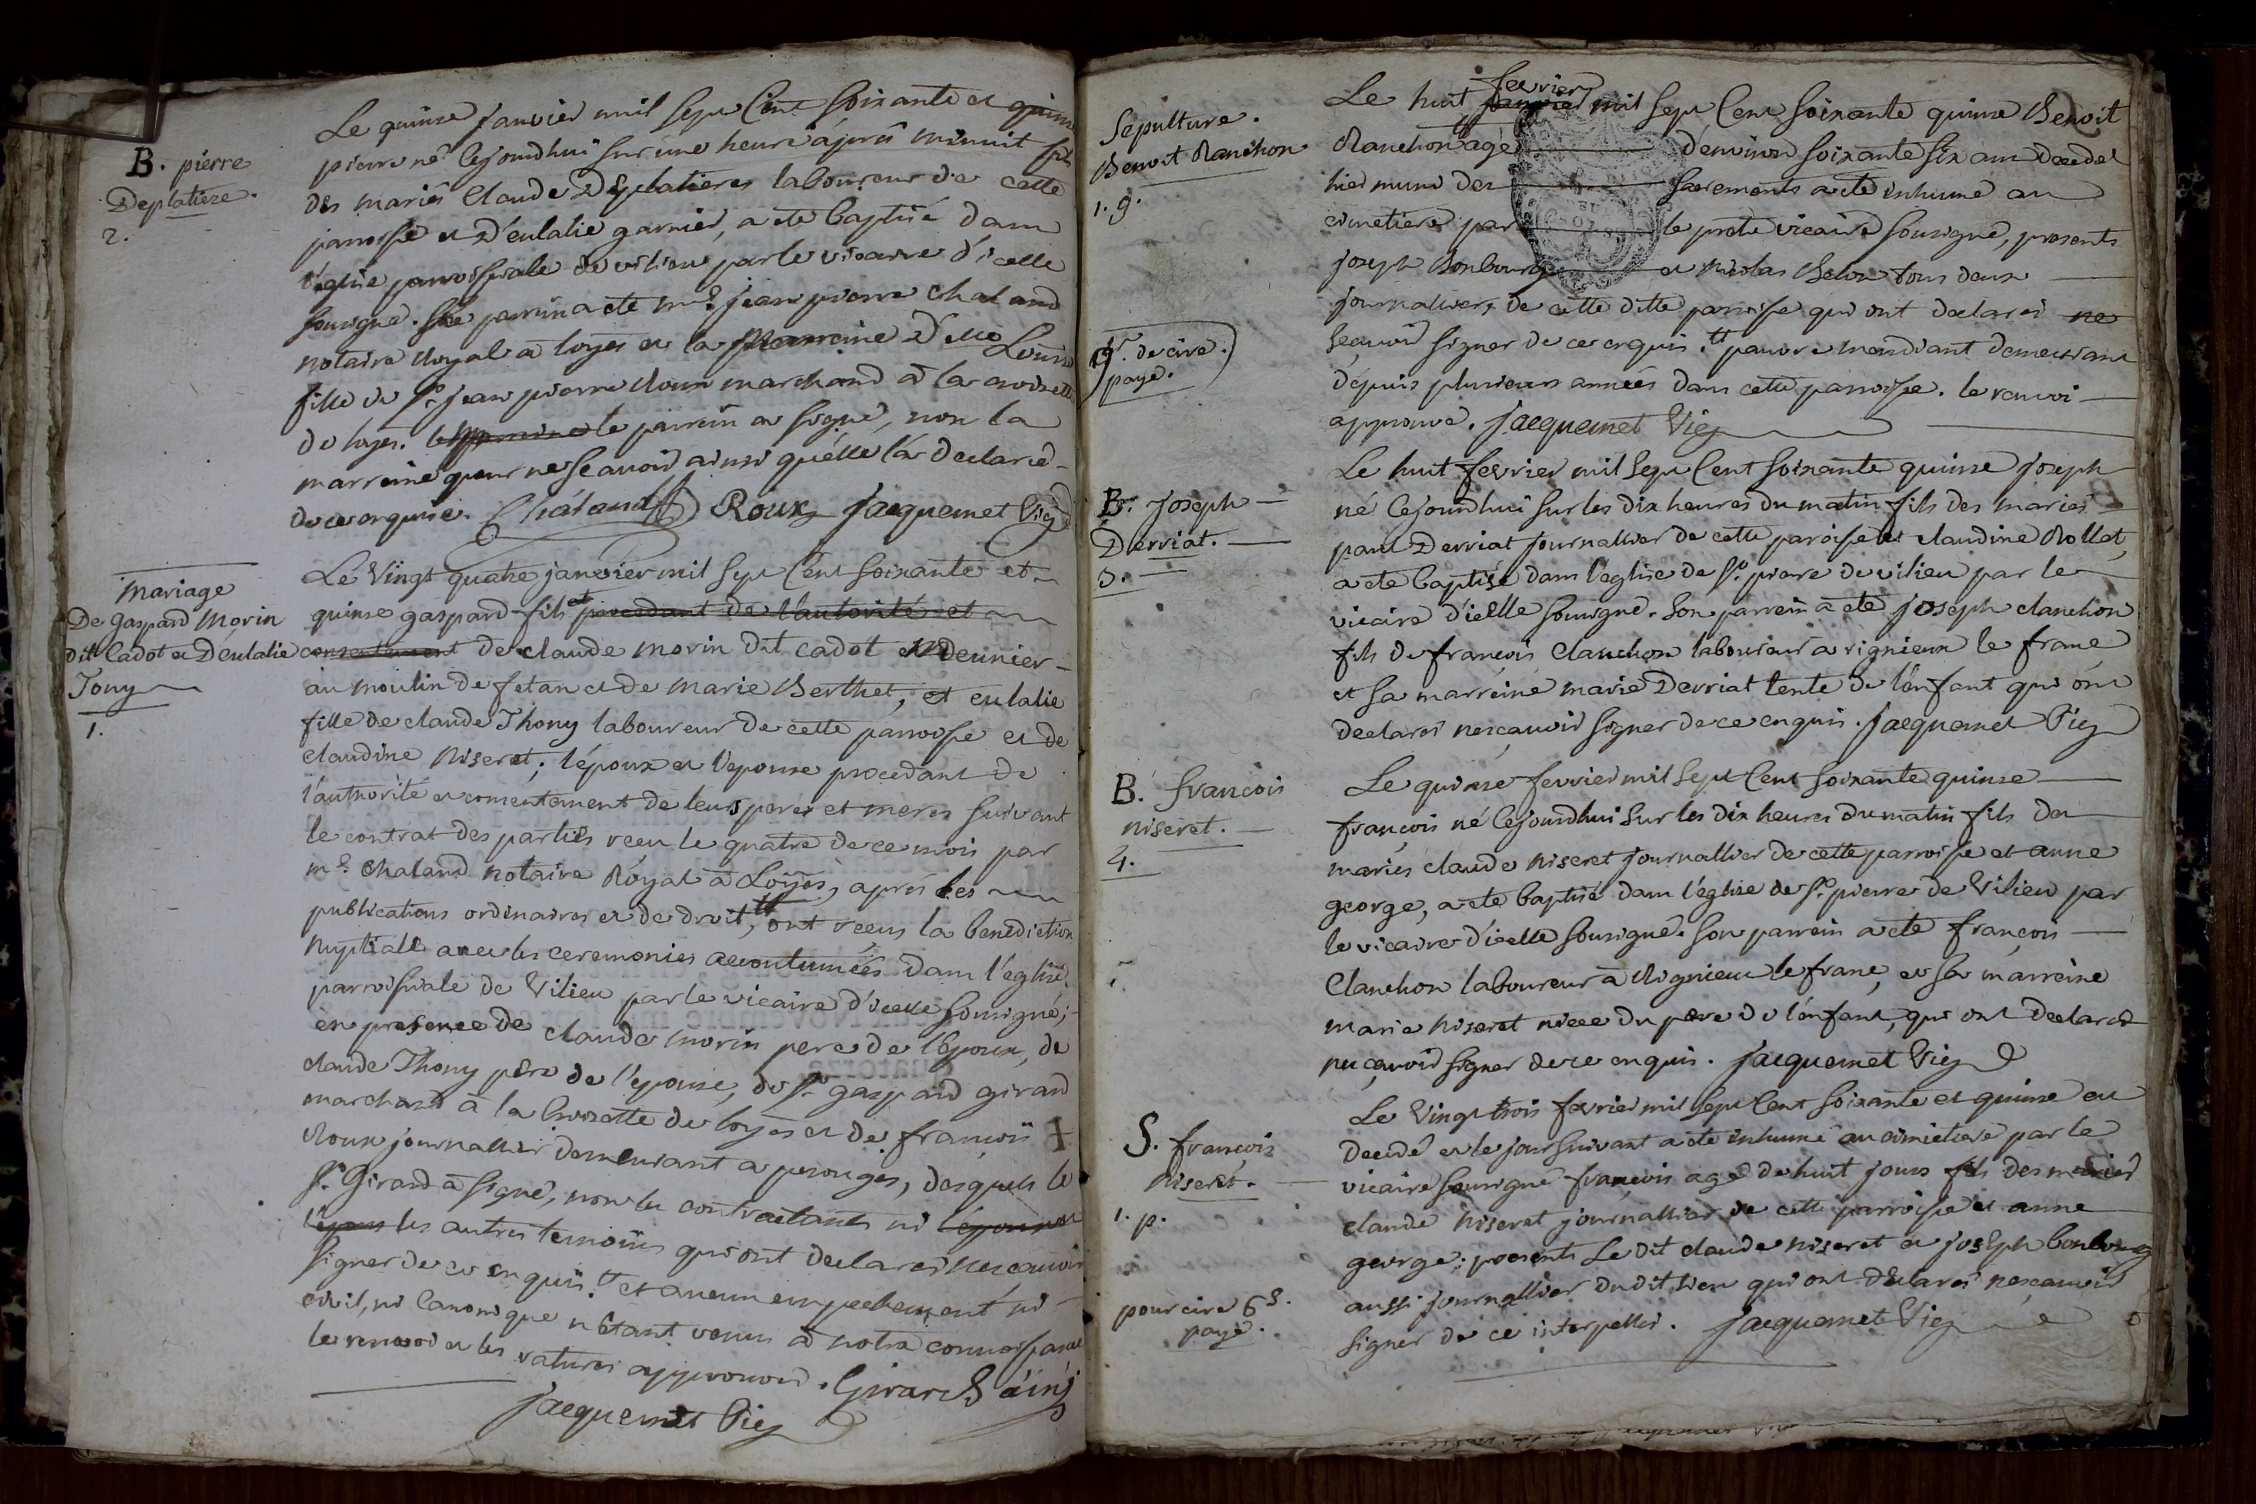 B. pierre
Deplatiere.
2.
Le quinze janvier mil sept Cent soixante et quinze
pierre né Cejourdhui sur une heure aprés minuit fils
des mariés Claude Deplatieres laboureur de cette
parroisse et D'eulalie garnier, a eté baptisé dans
l'eglise parroissiale de vilieu par le vicaire d'icelle
sousigné. Son parrain a eté me. jean pierre Chaland
notaire Royal a loyes et la Marreine Delle Louise
fille de sr. jean pierre Roux marchand à la croisette
de loyes. le parrein a signé, non la
marreine pour ne scavoir ainsi quélle l'a declaré
de ce enquise. Chaland Roux Jacquemet Vic
Mariage
De gaspard Morin
dit Cadot et D'eulalie
Tony
1.
Le Vingt quatre janvier mil sept Cent soixante et
quinze gaspard fils et procedant de l'autorité et
consentement de claude morin dit cadot meunier
au moulin de fetan et de marie Berthet, et eulalie
fille de claude Thony laboureur de cette parroisse et de
claudine Niseret; l'époux et l'epouse procedant de
l'authorité et consentement de leurs peres et meres suivant
le contrat des parties receu le quatre de ce mois par
me. chaland notaire Royal à Loyes, aprés les
publications ordinaires et de droit, ont receus la benediction
nuptiale avec les ceremonies accoutumées dans l'eglise
parroissiale de Vilieu par le vicaire d'icelle sousigné;
en presence de claude morin pere de l'Epoux, de
claude Thony pere de l'epouse, de sr. gaspard girard
marchand à la Croisette de loyes et de françois
Roux journallier demeurant a perouges, desquels le
sr. Girard à signé, non les contractants ni
les autres temoins qui ont declarés nescavoir
signer de ce enquis. et aucun empechement ni
civil, ni Canonique nétant venus à notre connoissance
le renvoi et les ratures approuvés. Girard Lainé
Jacquemet Vic
Sepulture.
Benoit Ranchon
1. g.
9s. de cire.
payé.
Le huit fevrier mil sept Cent soixante quinze Benoit
Ranchon agé d'environ soixante six ans decedé
hier muni des sacrements a eté inhumé au
cimetiere par le pretre vicaire sousigné, presents
joseph Bonbourg et Nicolas Belon tous deux
journalliers de cette ditte parroisse qui ont declarés ne
scavoir signer de ce enquis. pauvre mendiant demeurant
depuis plusieurs années dans cette parroisse. le renvoi
approuvé. Jacquemet Vic
B. Joseph
Derriat.
3.
Le huit fevrier mil sept Cent soixante quinze joseph
né Cejourdhui sur les dix heures du matin fils des mariés
paul Derriat journallier de cette paroisse et claudine Rollet
a eté baptisé dans l'eglise de St. pierre de vilieu par le
vicaire d'icelle sousigné. Son parrein a eté joseph clanchon
fils de françois Clanchon laboureur a rignieux le franc
et sa marreine marie Derriat tente de l'énfant qui ont
declarés nescavoir signer de ce enquis. Jacquemet Vic
B. françois
niseret.
4.
Le quinze fevrier mil sept Cent soixante quinze
françois né Cejourdhui sur les dix heures du matin fils des
mariés claude Niseret journallier de cette parroisse et anne
george, a eté baptisé dans l'eglise de St. pierre de Vilieu par
le vicaire d'icelle sousigné. son parrein a eté françois
Clanchon laboureur à Rignieux le franc, et sa marreine
marie Niseret niece du pere de l'énfant, qui ont declarés
ne çavoir signer de ce enquis. Jacquemet Vic
S. françois
Niseret.
1. p.
pour cire 6s.
payé.
Le Vingt trois fevrier mil sept Cent soixante et quinze est
decedé et le jour suivant a eté inhumé au cimetiere par le
vicaire sousigné françois agé de huit jours fils des mariés
claude Niseret journallier de cette parroisse et anne
george; presents Le dit claude niseret et joseph bonbourg
aussi journallier dudit lieu qui ont declarés nescavoir
signer de ce interpellés. Jacquemet Vic